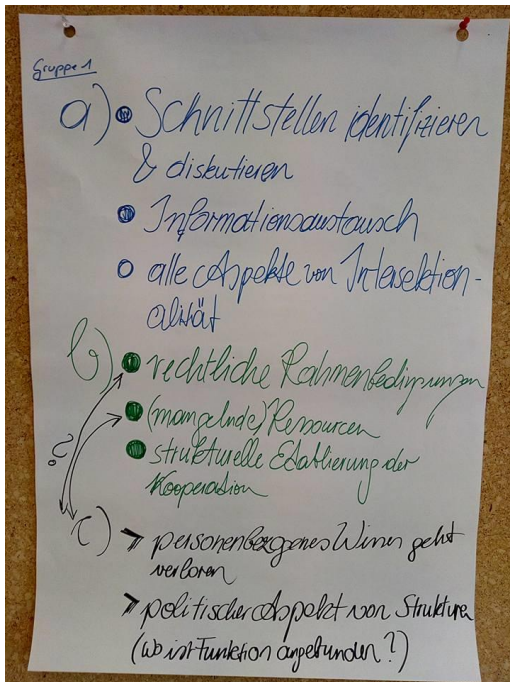 Gruppe 1
a) Schnittstellen identifizieren
& diskutieren
Informationsaustausch
alle Aspekte von Intersektion-
alität
b) rechtliche Rahmenbedingungen
(mangelnde) Ressourcen
strukturelle Etablierung der
Kooperation
?
c) > personenbezogenes Wissen geht
verloren
> politischer Aspekt von Strukturen
(wo ist Funktion angebunden?)